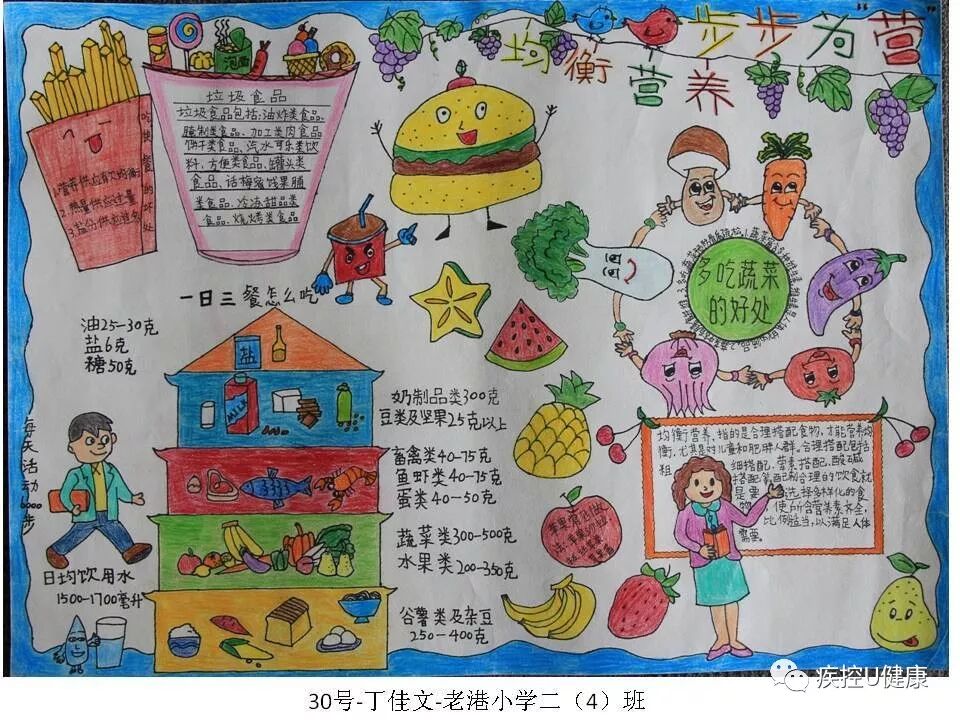 均衡营养
步步为"营"
泡面
垃圾食品
垃圾食品包括:油炸类食品、
腌制类食品、加工类肉食品
饼干类食品、汽水可乐类饮
料、方便类食品、罐头类
食品、话梅蜜饯果脯
类食品、冷冻甜品类
食品、烧烤类食品
吃快餐的坏处
1.营养供应有欠均衡
2.热量供应过量
3.盐份供应过多
多吃蔬菜
的好处
一日三餐怎么吃
油25-30克
盐6克
糖50克
盐
MILK
奶制品类300克
豆类及坚果25克以上
畜禽类40-75克
鱼虾类40-75克
蛋类40-50克
蔬菜类300-500克
水果类200-350克
谷薯类及杂豆
250-400克
每天活动6000步
日均饮用水
1500-1700毫升
均衡营养,指的是合理搭配食物,才能营养均
衡,尤其是对儿童和肥胖人群。合理搭配包括
粗细搭配、荤素搭配、酸碱
搭配等
合理的饮食就
是需 选择多样化的食
物 使所含营养素齐全,
比例适当,以满足人体
需要。
疾控U健康
30号-丁佳文-老港小学二（4）班